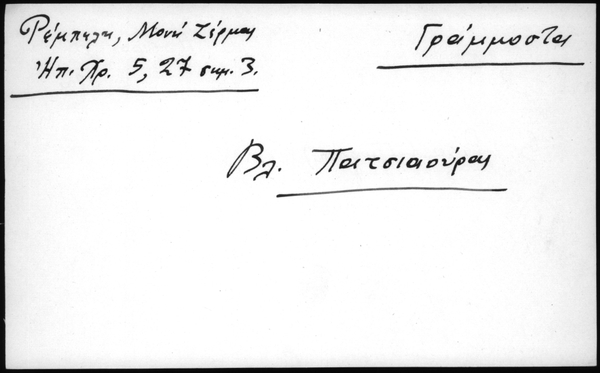 Ρέμπελη, Μονή Ζέρμας
Ἠπ. Χρ. 5, 27 σημ. 3.
Γράμμοστα
Βλ. Πατσιαούρας